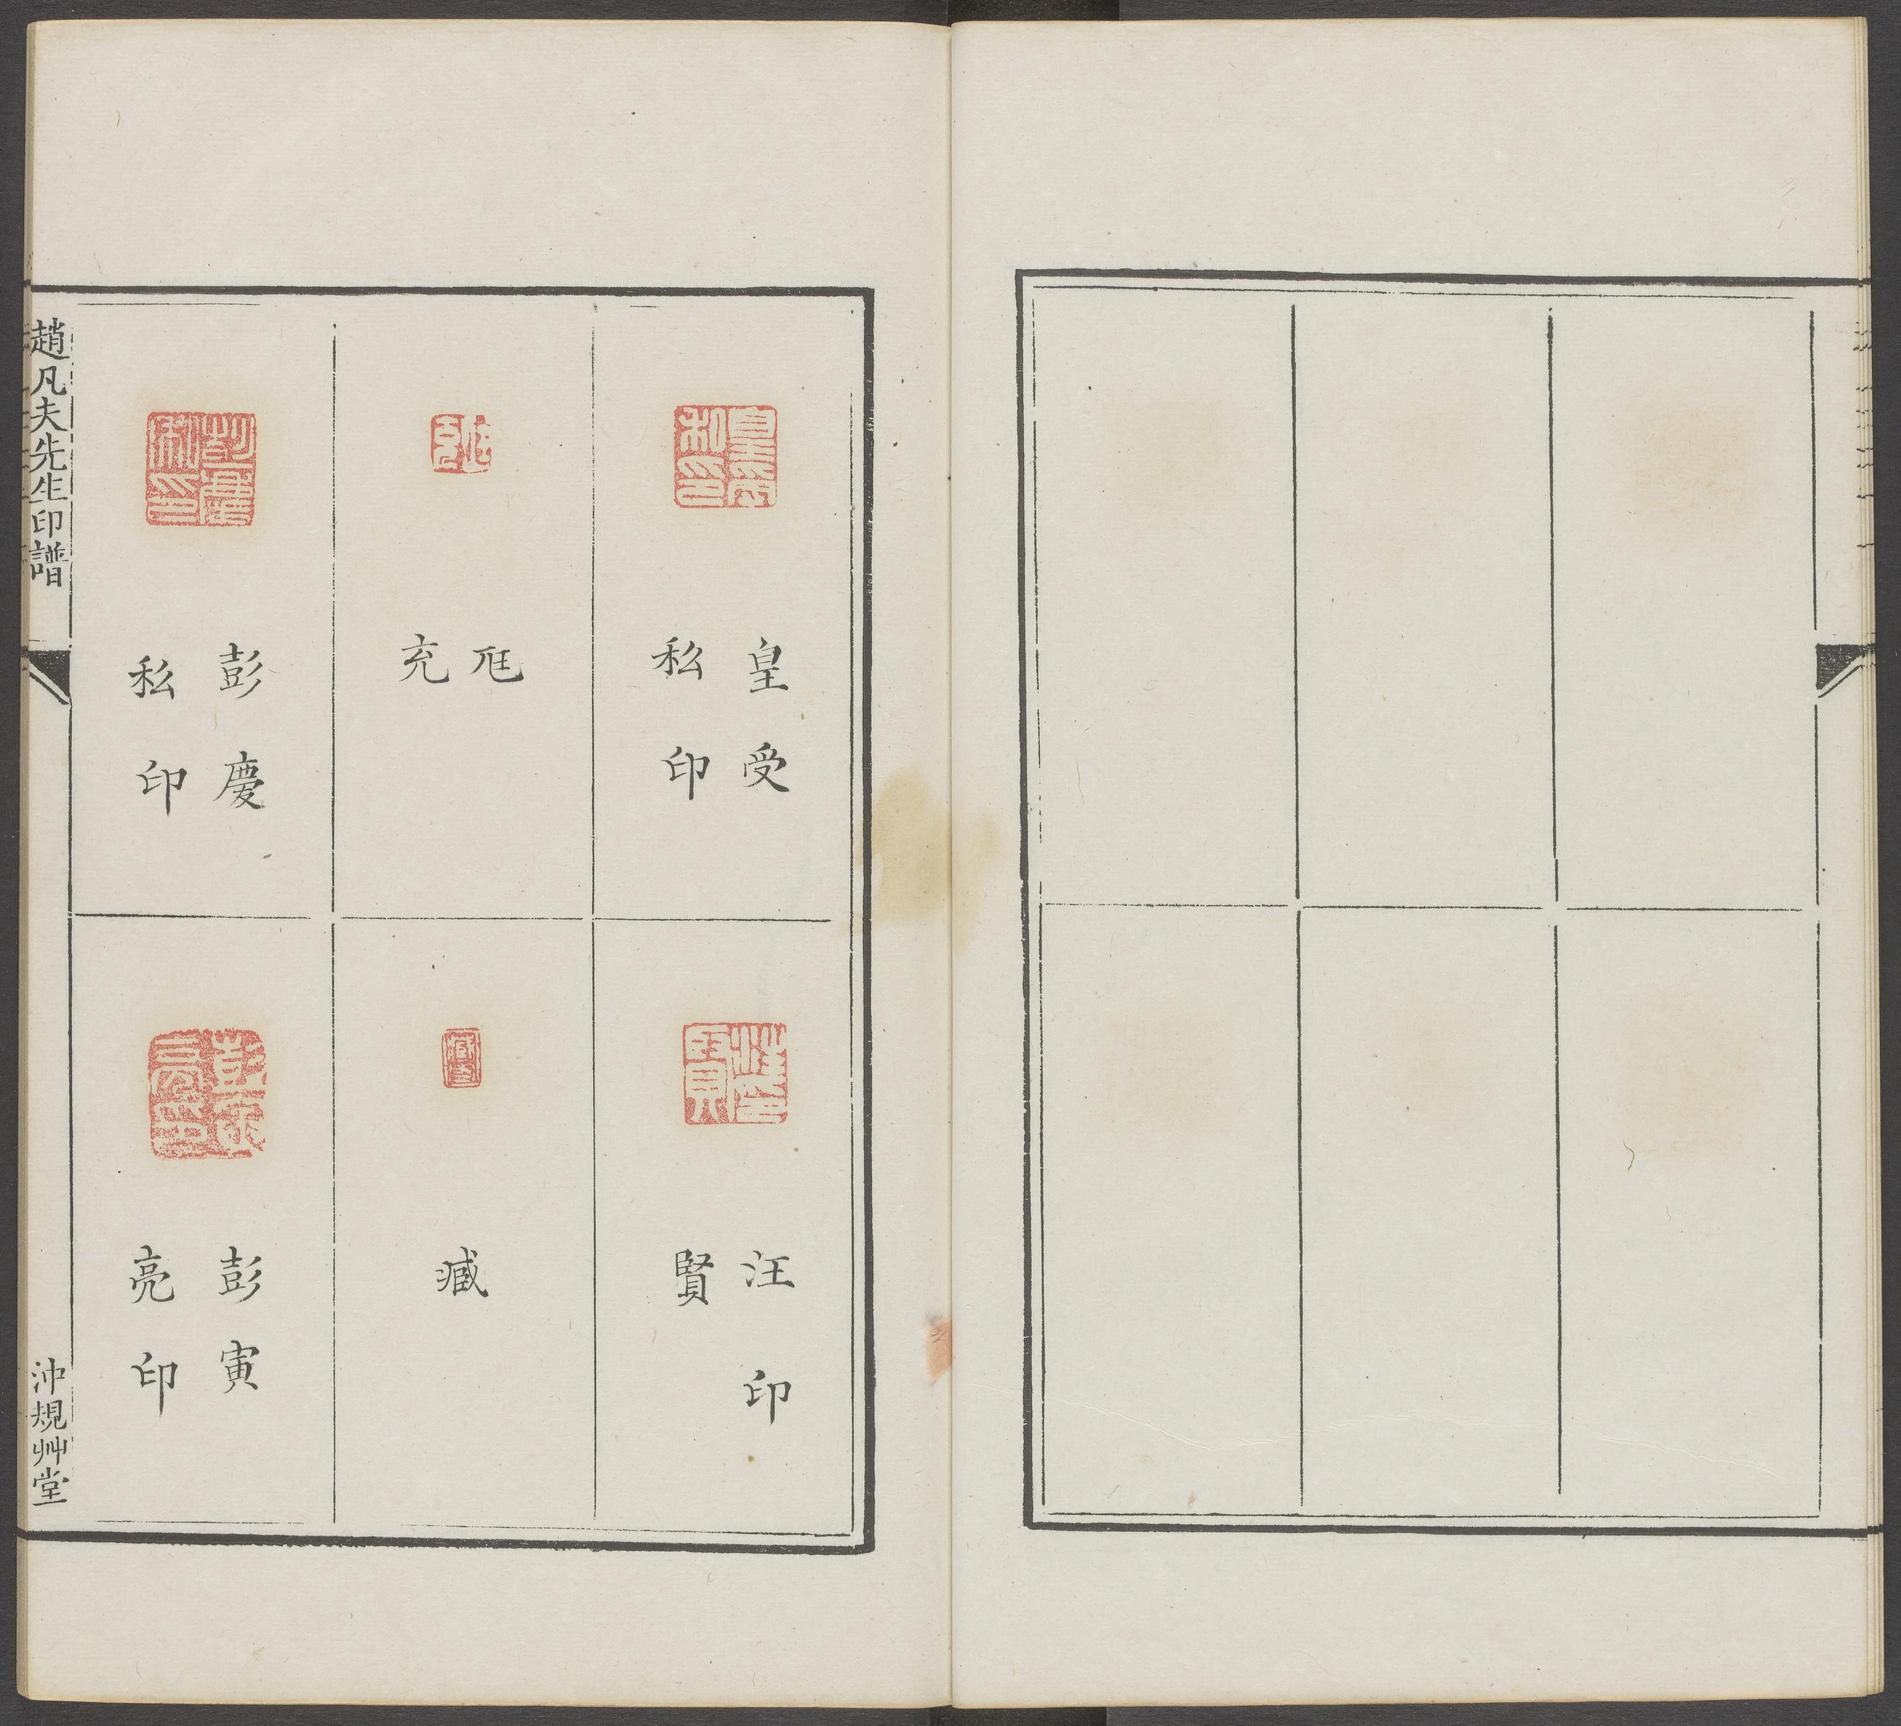 皇受
私印
尫
充
彭慶
私印
汪印
賢
臧
彭寅
亮印
趙凡夫先生印譜
沖規艸堂